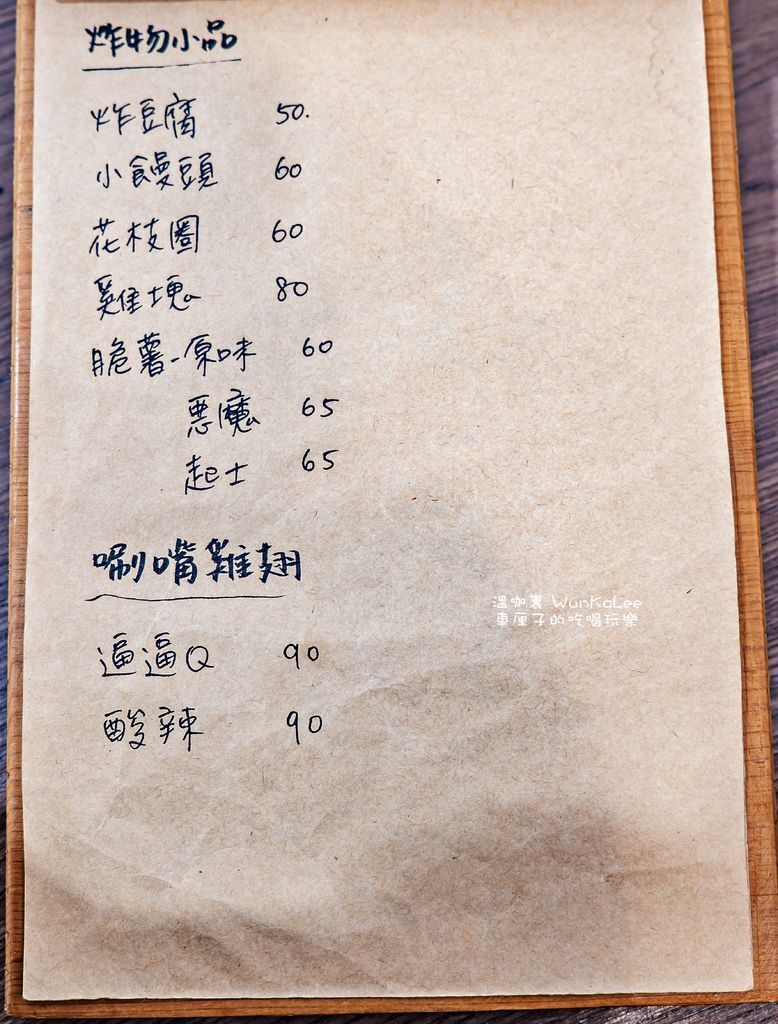 炸物小品
炸豆腐 50.
小饅頭 60
花枝圈 60
雞塊 80
脆薯-原味 60
惡魔 65
起士 65
唰嘴雞翅
逼逼Q 90
酸辣 90
溫咖裏 WunKaLee
車厘子的吃喝玩樂